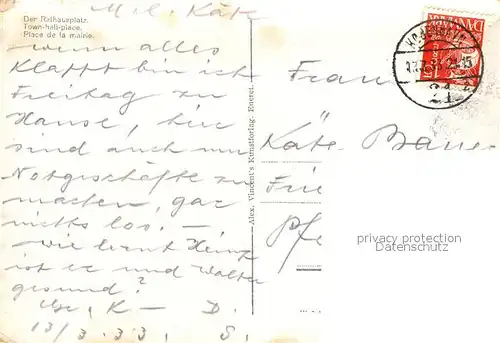 Der Rathausplatz.
Town-hall-place.
Place de la mairie.
M. l. Käte
wenn alles
klappt bin ich
Freitag zu
Hause, hier
sind auch nur
Notgeschäfte zu
machen, gar
nichts los. –
wie lernt Heinz
ist er und Walter
gesund?
K – D.
13/3.33. S.
Alex. Vincent's Kunstforlag. Eneret.
DANMARK
21
Frau
Käte Bauer
privacy protection
Datenschutz